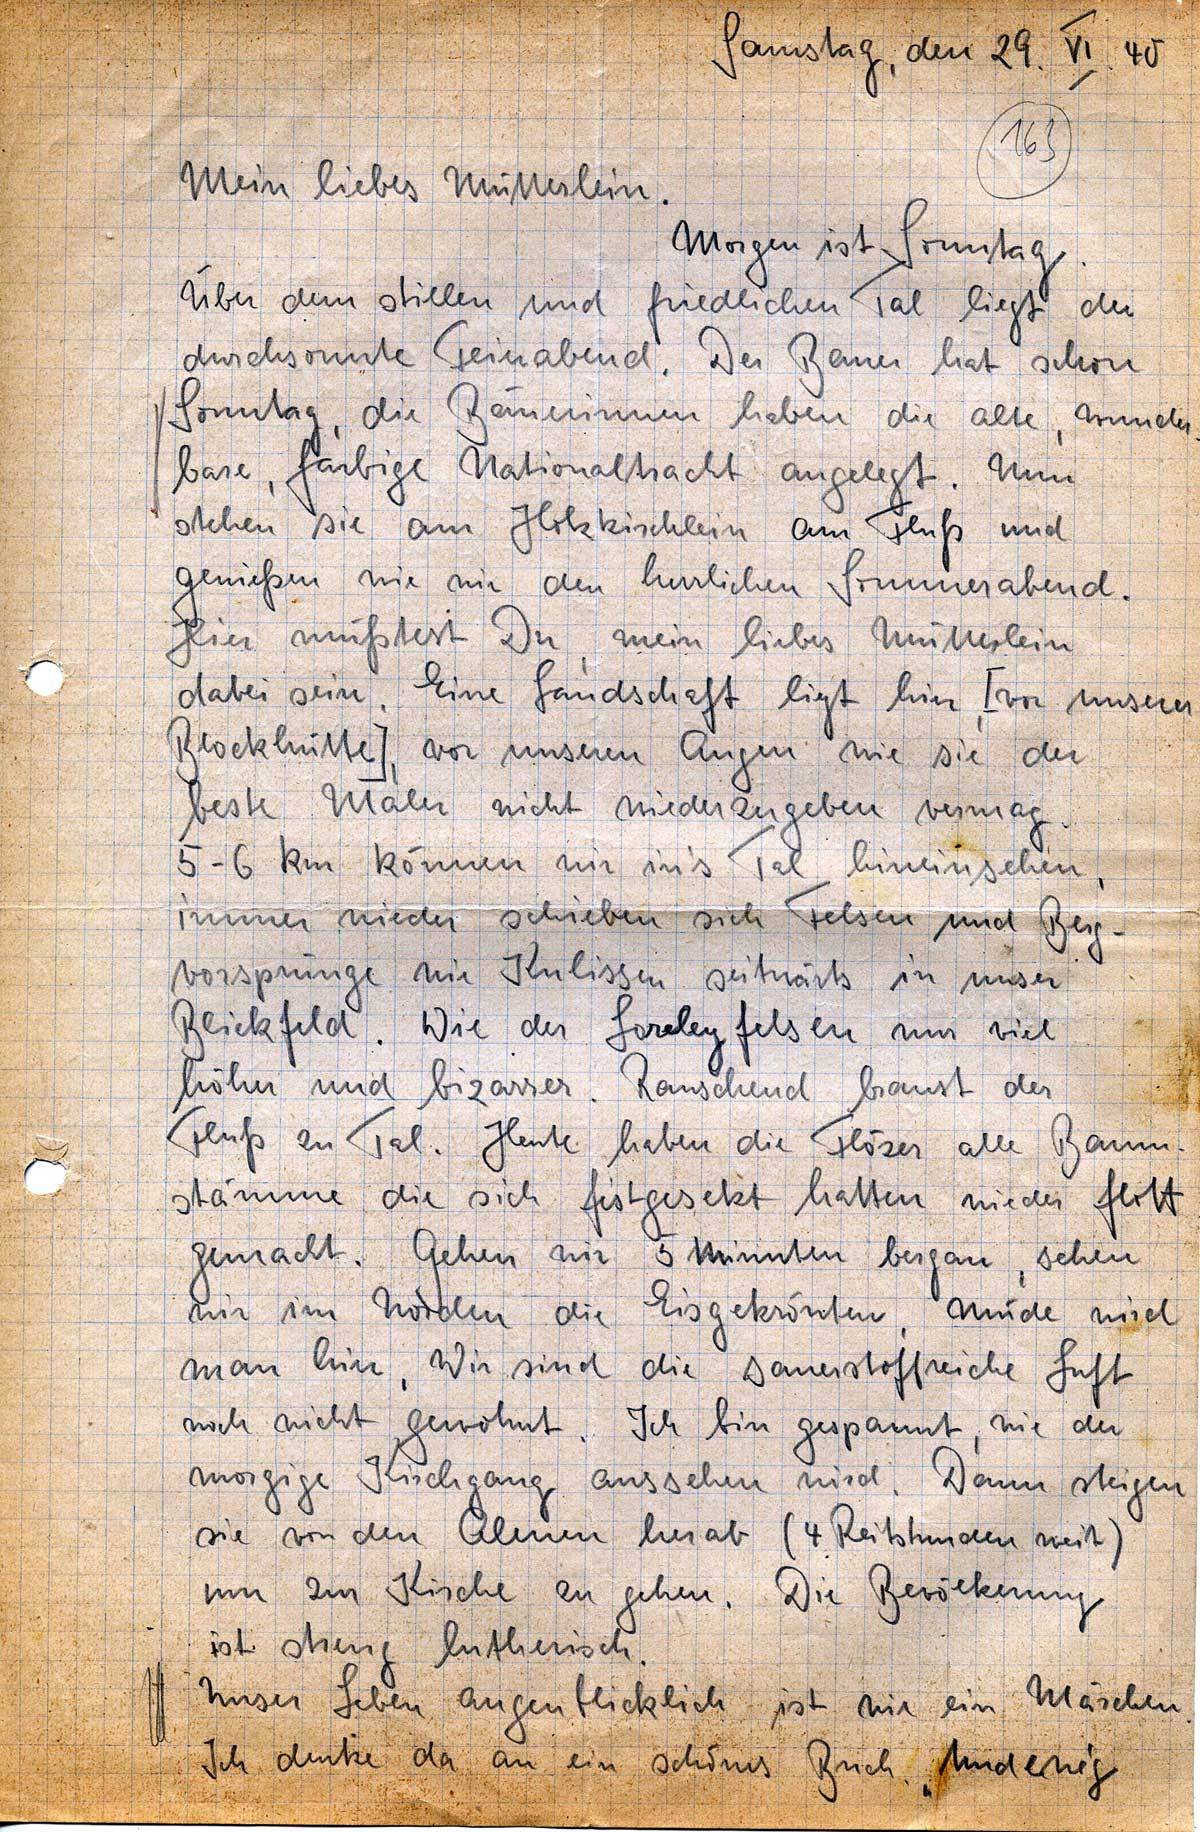 Samstag, den 29. VI. 40
163
Mein liebes Mütterlein.
Morgen ist Sonntag.
Über dem stillen und friedlichen Tal liegt der
durchsonnte Feierabend. Der Bauer hat schon
Sonntag, die Bäuerinnen haben die alte, wunder-
bare, farbige Nationaltracht angelegt. Nun
stehen sie am Holzkirchlein am Fluß und
genießen wie wir den herrlichen Sommerabend.
Hier müßtest Du, mein liebes Mütterlein
dabei sein. Eine Landschaft liegt hier, [vor unserer
Blockhütte], vor unseren Augen wie sie der
beste Maler nicht wiederzugeben vermag.
5-6 km können wir in's Tal hineinsehen,
immer wieder schieben sich Felsen und Berg-
vorsprünge wie Kulissen seitwärts in unser
Blickfeld. Wie der Loreleyfelsen nur viel
höher und bizarrer. Rauschend braust der
Fluß zu Tal. Heute haben die Flözer alle Baum-
stämme die sich festgesetzt hatten wieder flott
gemacht. Gehen wir 5 Minuten bergan, sehen
wir im Norden die Eisgekrönten. Müde wird
man hier, Wir sind die sauerstoffreiche Luft
noch nicht gewohnt. Ich bin gespannt, wie der
morgige Kirchgang aussehen wird. Dann steigen
sie von den Almen herab (4 Reitstunden weit)
um zur Kirche zu gehen. Die Bevölkerung
ist streng lutherisch.
Unser Leben augenblicklich ist wie ein Märchen.
Ich denke da an ein schönes Buch. „Und ewig